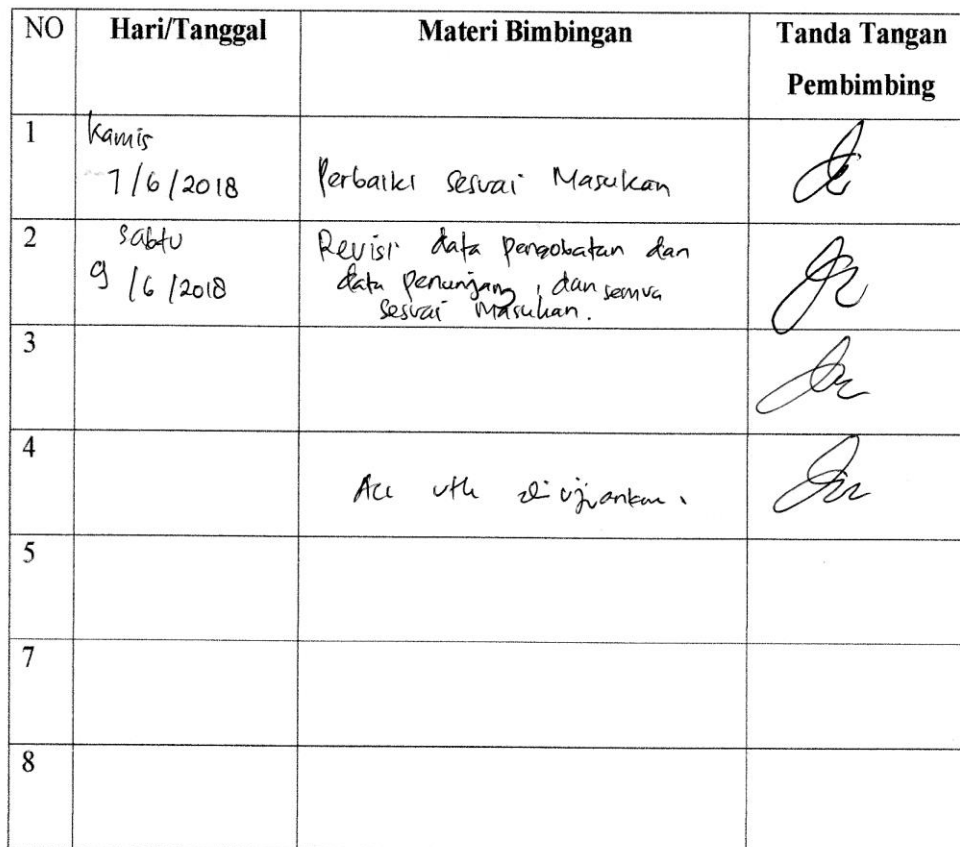 NO Hari/Tanggal Materi Bimbingan Tanda Tangan
Pembimbing
1 Kamis
7/6/2018 Perbaiki sesuai Masukan
2 Sabtu Revisi data pengobatan dan
9/6/2018 data penunjang, dan semua
sesuai Masukan.
3
4
Acc utk di ujiankan.
5
7
8